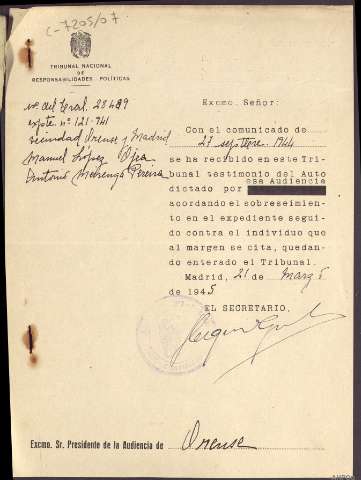 C-7205/07
TRIBUNAL NACIONAL
DE
RESPONSABILIDADES POLÍTICAS
nº del Gral. 28489
expte. nº 121-741
vecindad Orense y Madrid
Manuel López
Antonio Marengo Pereira
Excmo. Señor:
Con el comunicado de
27 septbre. 1944
se ha recibido en este Tri-
bunal testimonio del Auto
dictado por ese Audiencia
acordando el sobreseimien-
to en el expediente segui-
do contra el individuo que
al margen se cita, quedan-
do enterado el Tribunal.
Madrid, 21 de Marzo
de 1945
EL SECRETARIO,
Excmo. Sr. Presidente de la Audiencia de Orense